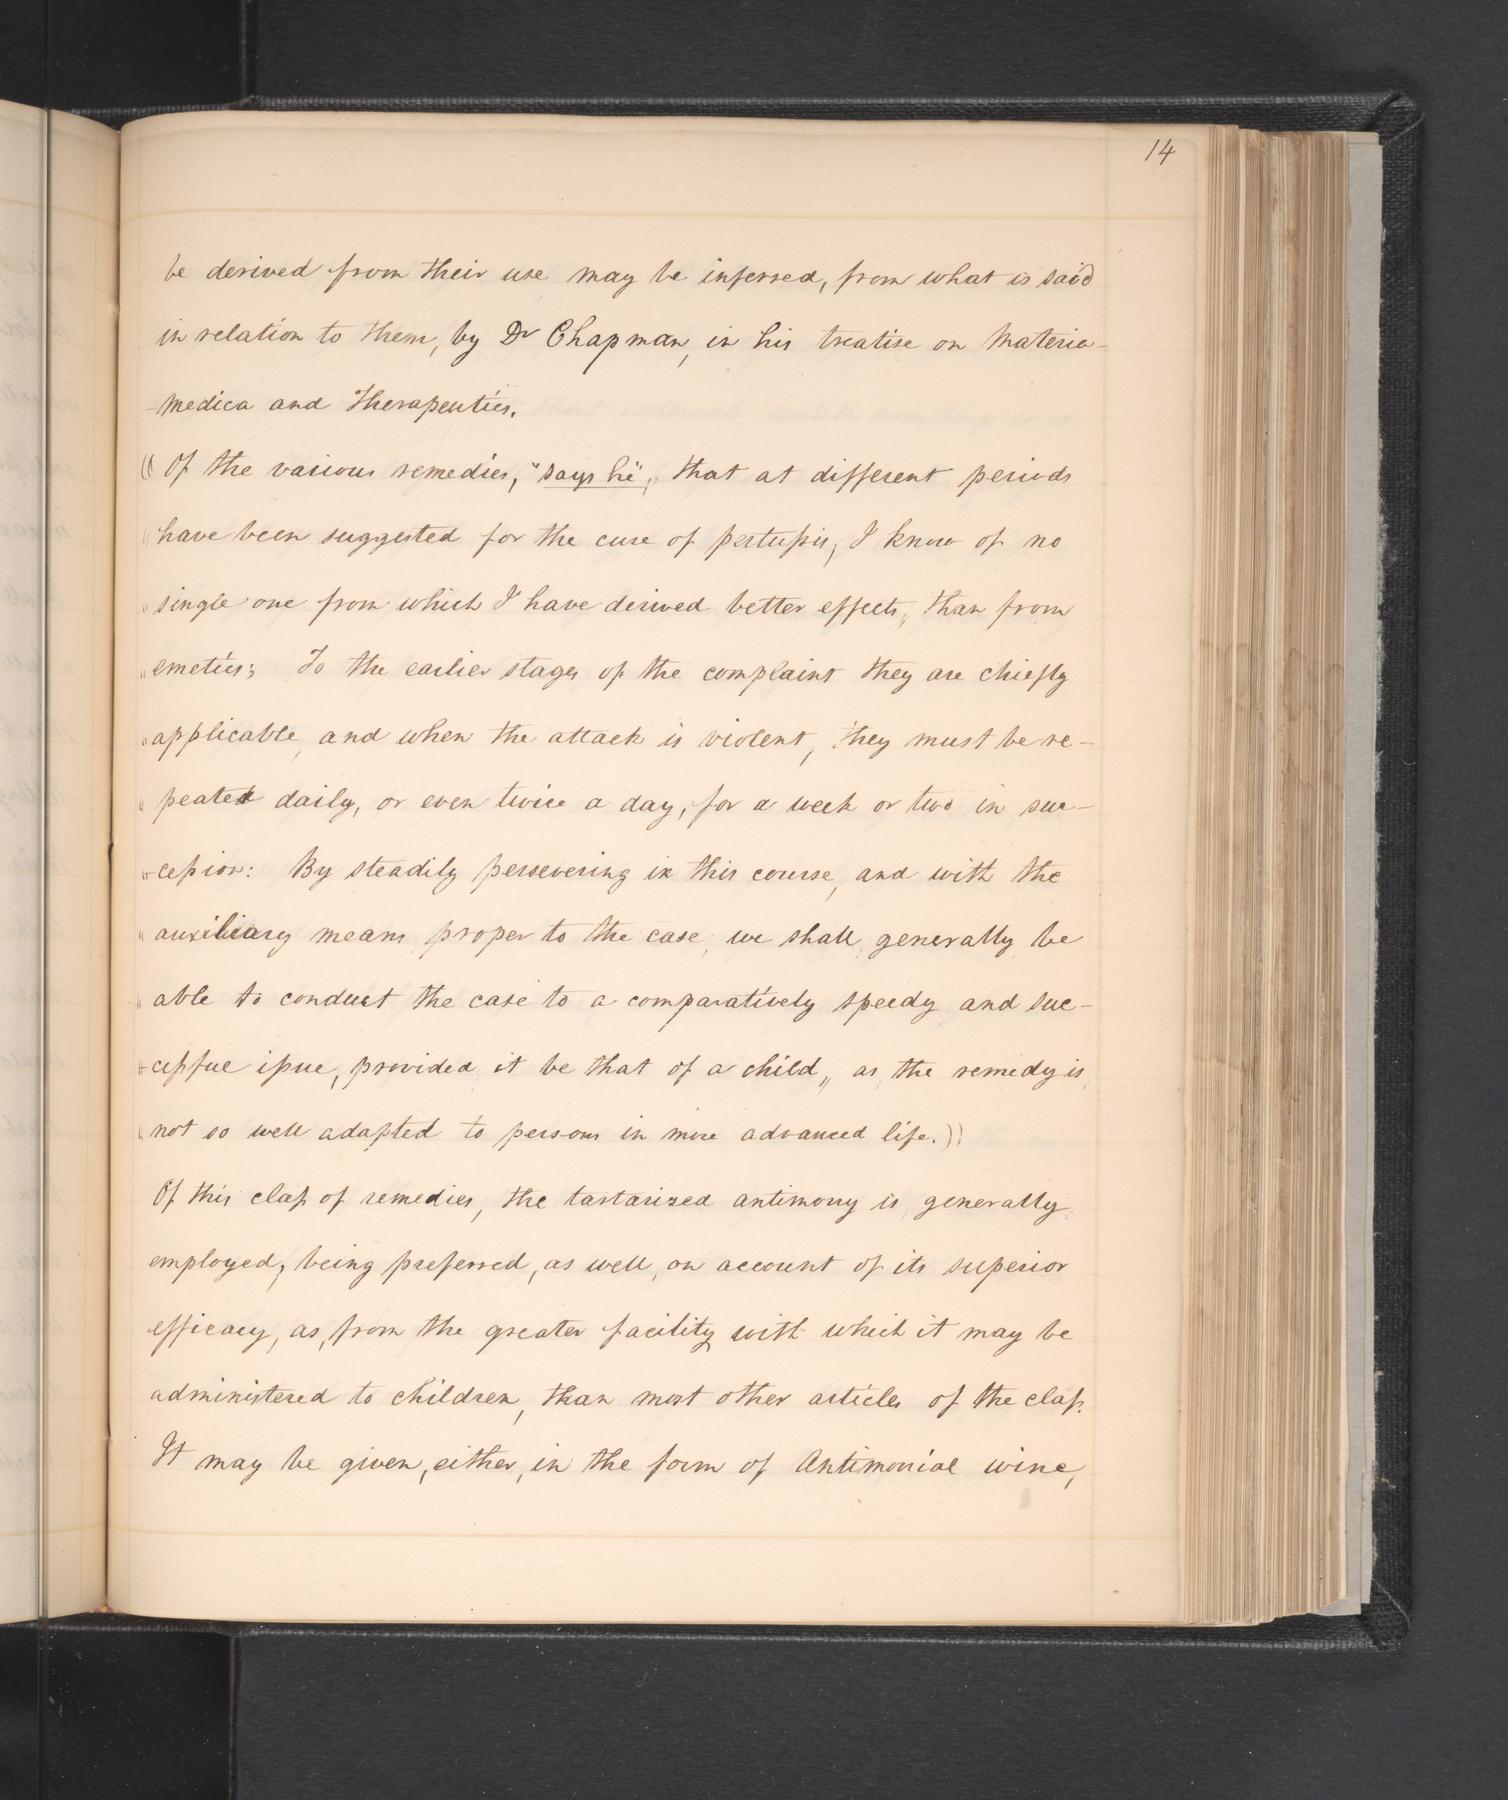 14
be derived from their use may be inferred, from what is said
in relation to them, by Dr Chapman, in his treatise on Materia-
-Medica and Therapeutics.
"Of the various remedies, "says he", that at different periods
"have been suggested for the cure of pertussis, I know of no
"single one from which I have derived better effects, than from
"emetics; To the earlier stages of the complaint they are chiefly
"applicable, and when the attack is violent, they must be re-
"peated daily, or even twice a day, for a week or two in suc-
"-cession: By steadily persevering in this course, and with the
"auxiliary means proper to the case, we shall, generally, be
"able to conduct the case to a comparatively speedy and suc-
"-cessful issue, provided it be that of a child, as the remedy is
"not so well adapted to persons in more advanced life."
Of this class of remedies, the tartarized antimony is, generally,
employed, being preferred, as well, on account of its superior
efficacy, as, from the greater facility with which it may be
administered to children, than most other articles of the class.
It may be given, either, in the form of Antimonial wine,